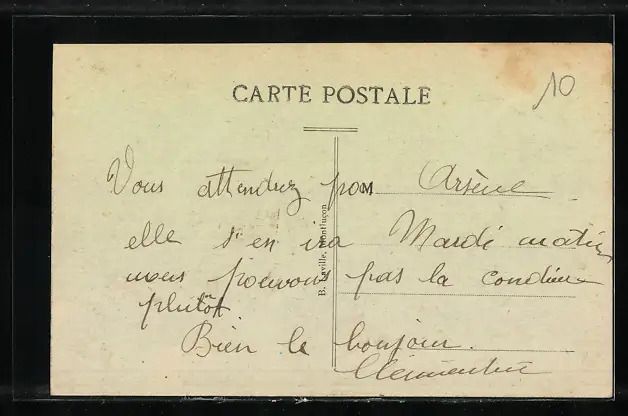 CARTE POSTALE
10
Vous attendrez pas Arsène
M
elle s'en ira Mardi matin
nous pouvons pas la conduire
plutôt
Bien le bonjour.
Clémentine
B. Montluçon